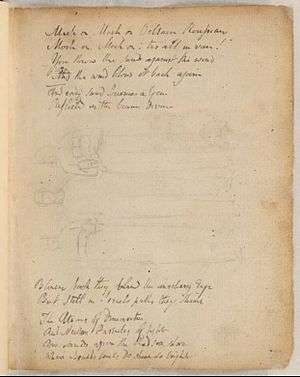 Mock on Mock on Voltaire Rousseau
Mock on Mock on! tis all in vain!
You throw the sand against the wind
And the wind blows it back again
And every sand becomes a Gem
Reflected in the beams divine
Blown back they blind the mocking Eye
But still in Israels paths they shine
The Atoms of Democritus
And Newtons Particles of light
Are sands upon the Red sea shore
Where Israels tents do shine so bright